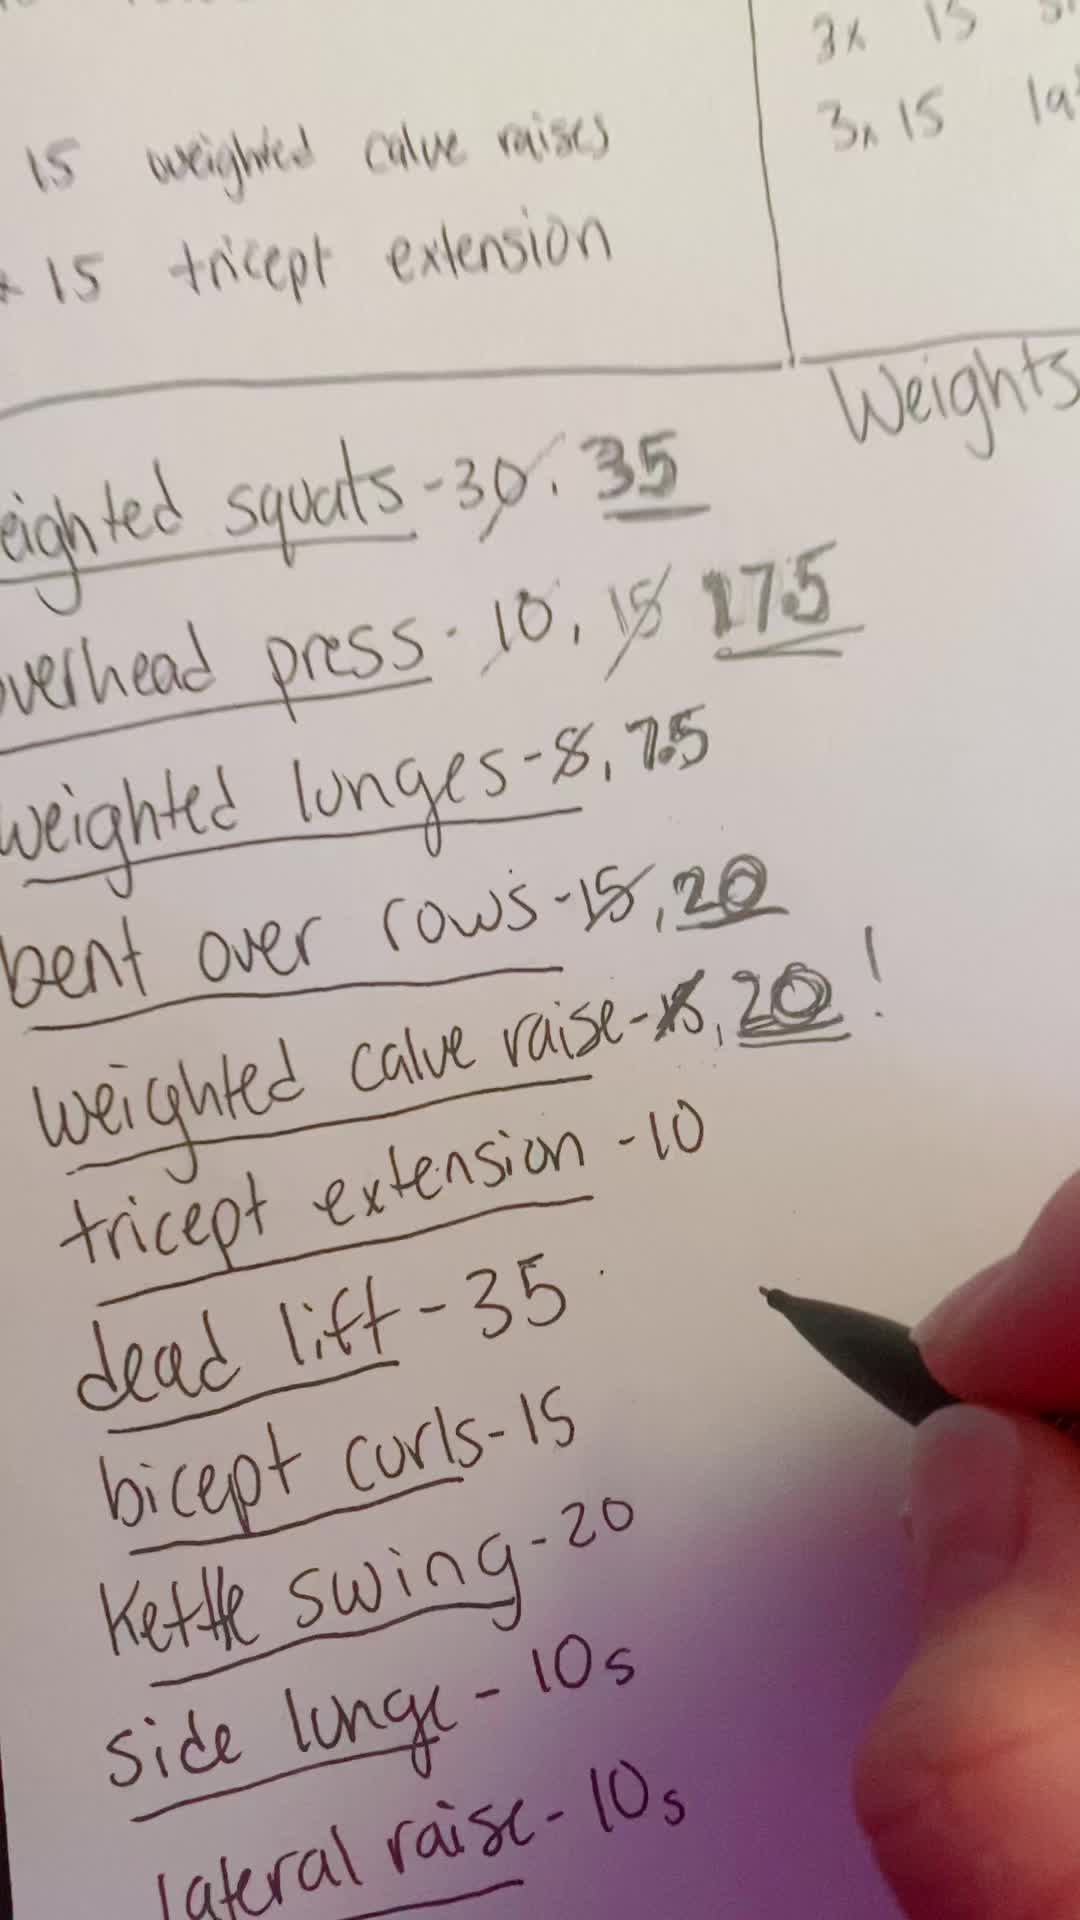 3x 15
15 weighted calve raises
3x 15
15 tricept extension
Weights
eighted squats - 30. 35
overhead press - 10, 15 17.5
weighted lunges - 8, 7.5
bent over rows - 15, 20
weighted calve raise - 15, 20!
tricept extension - 10
dead lift - 35
bicept curls - 15
Kettle swing - 20
side lunge - 10s
lateral raise - 10s